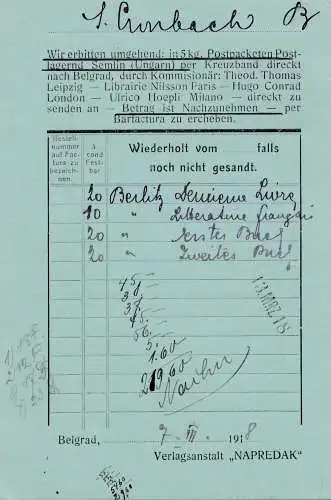 S. Cronbach B
Wir erbitten umgehend: in 5 kg. Postpacketen Post-
lagernd Semlin (Ungarn) per Kreuzband direkt
nach Belgrad, durch Kommisionär: Theod. Thomas
Leipzig — Librairie Nilsson Paris — Hugo Conrad
London — Ulrico Hoepli Milano — direkt zu
senden an — Betrag ist Nachzunehmen — per
Barfactura zu ercheben.
Bestell-
nummer
auf Fac-
tura zu
bezeich-
nen.
à
cond
Fest-
bar
Wiederholt vom falls
noch nicht gesandt.
20 Berlitz Deuxieme Livre
10 " Litterature français
20 " erstes Buch
20 " Zweites Buch
45.
38.
45.
56.
5.
1.60
219.60
Nachn
13. MRZ. 18
Belgrad, 7- III. 1918
Verlagsanstalt „NAPREDAK"